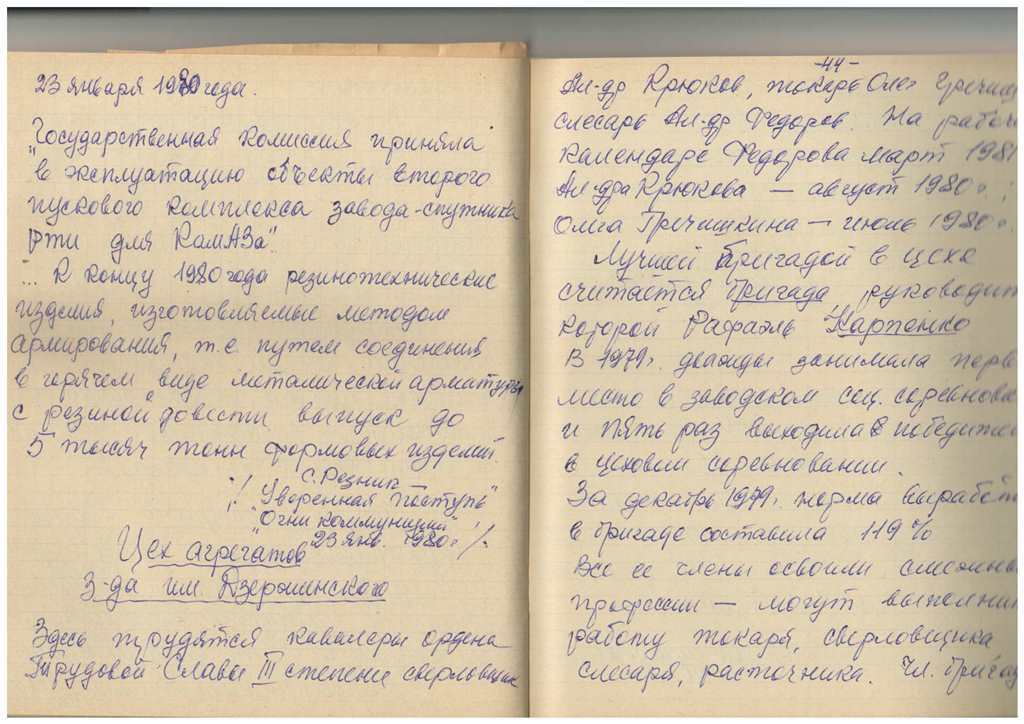 23 января 1980 года.
"Государственная комиссия приняла
в эксплуатацию объекты второго
пускового комплекса завода-спутника
РТИ для КамАЗа".
... К концу 1980 года резинотехнические
изделия, изготовляемые методом
армирования, т.е. путем соединения
в горячем виде металической арматуры
с резиной довести выпуск до
5 тысяч тонн формовых изделий.
С. Резник
"Уверенная поступь"
"Огни коммунизма"
23 янв. 1980 г.
Цех агрегатов
З-да им. Дзержинского
Здесь трудятся кавалеры ордена
Трудовой Славы III степени сверловщик
-44-
Ал-др Крюков, токарь Олег Гречиш
слесарь Ал-др Федоров. На рабоч
календаре Федорова март 1981
Ал-дра Крюкова — август 1980 г. ;
Олега Гречишкина — июль 1980 г.
Лучшей бригадой в цехе
считается бригада, руководит
которой Рафаэль Карпенко
В 1979 г. дважды занимала перво
место в заводском соц. соревнова
и пять раз выходила победител
в цеховом соревновании.
За декабрь 1979 г. норма выработ
в бригаде составила 119 %
Все ее члены освоили смежны
профессии — могут выполнит
работу токаря, сверловщика
слесаря, расточника. Чл. бригад